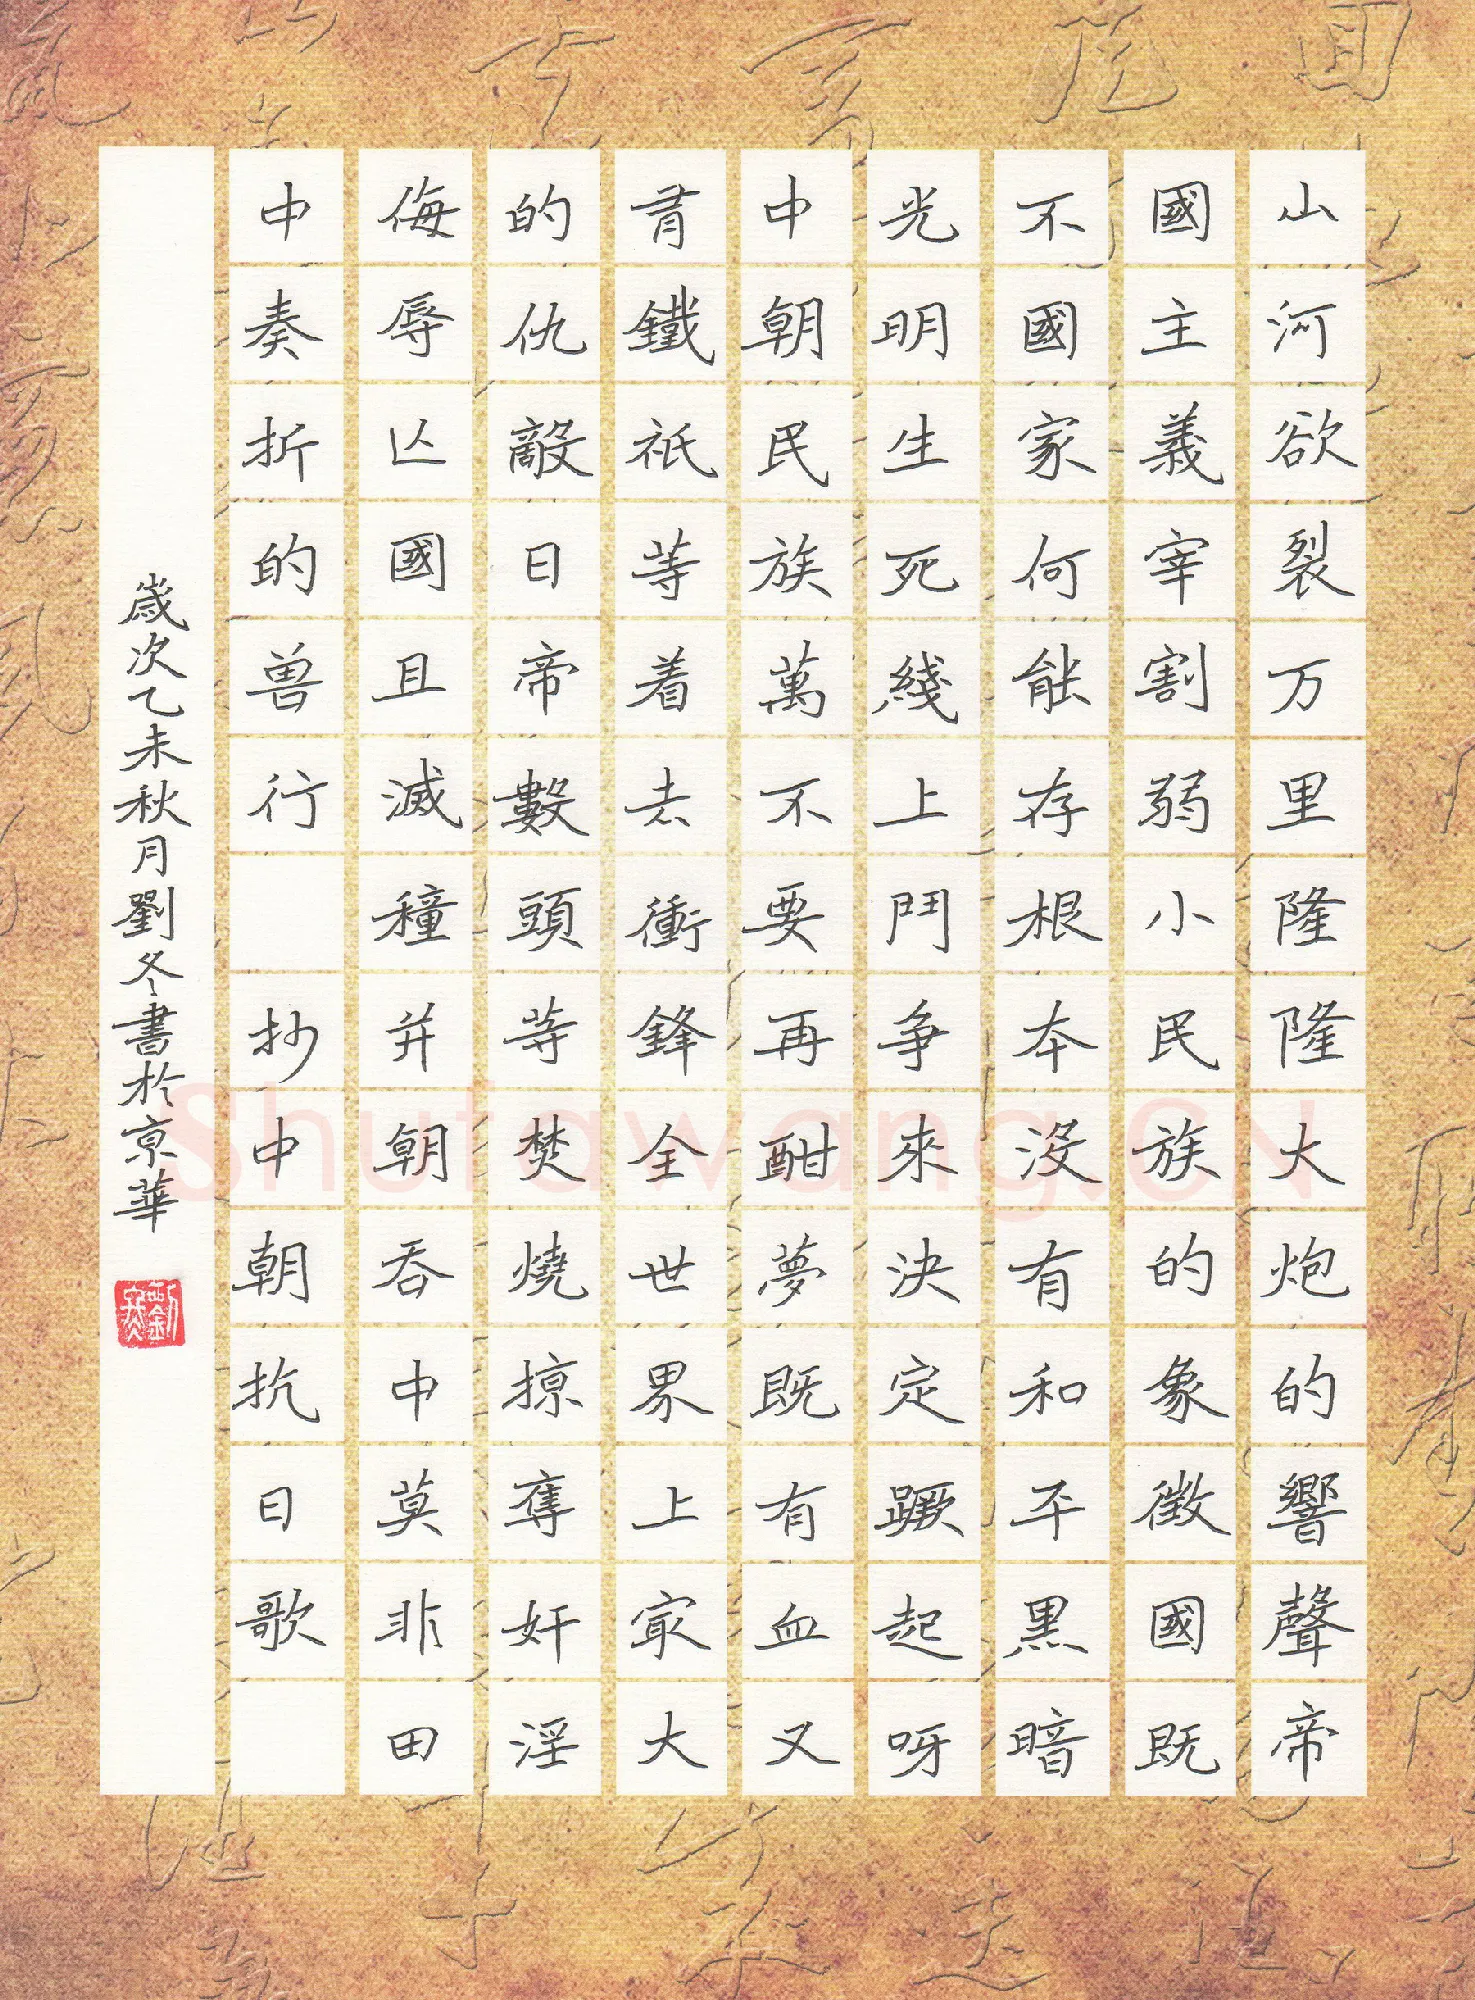 山河欲裂万里隆隆大炮的響聲帝
國主義宰割弱小民族的象徵國既
不國家何能存根本没有和平黑暗
光明生死綫上鬥争來决定蹶起呀
中朝民族萬不要再酣夢既有血又
有鐵衹等着去衝鋒全世界上最大
的仇敵日帝數頭等焚燒掠奪奸淫
侮辱亡國且滅種并朝吞中莫非田
中奏折的兽行 抄中朝抗日歌
歲次乙未秋月劉冬書於京華
劉冬
Shufawang.CN